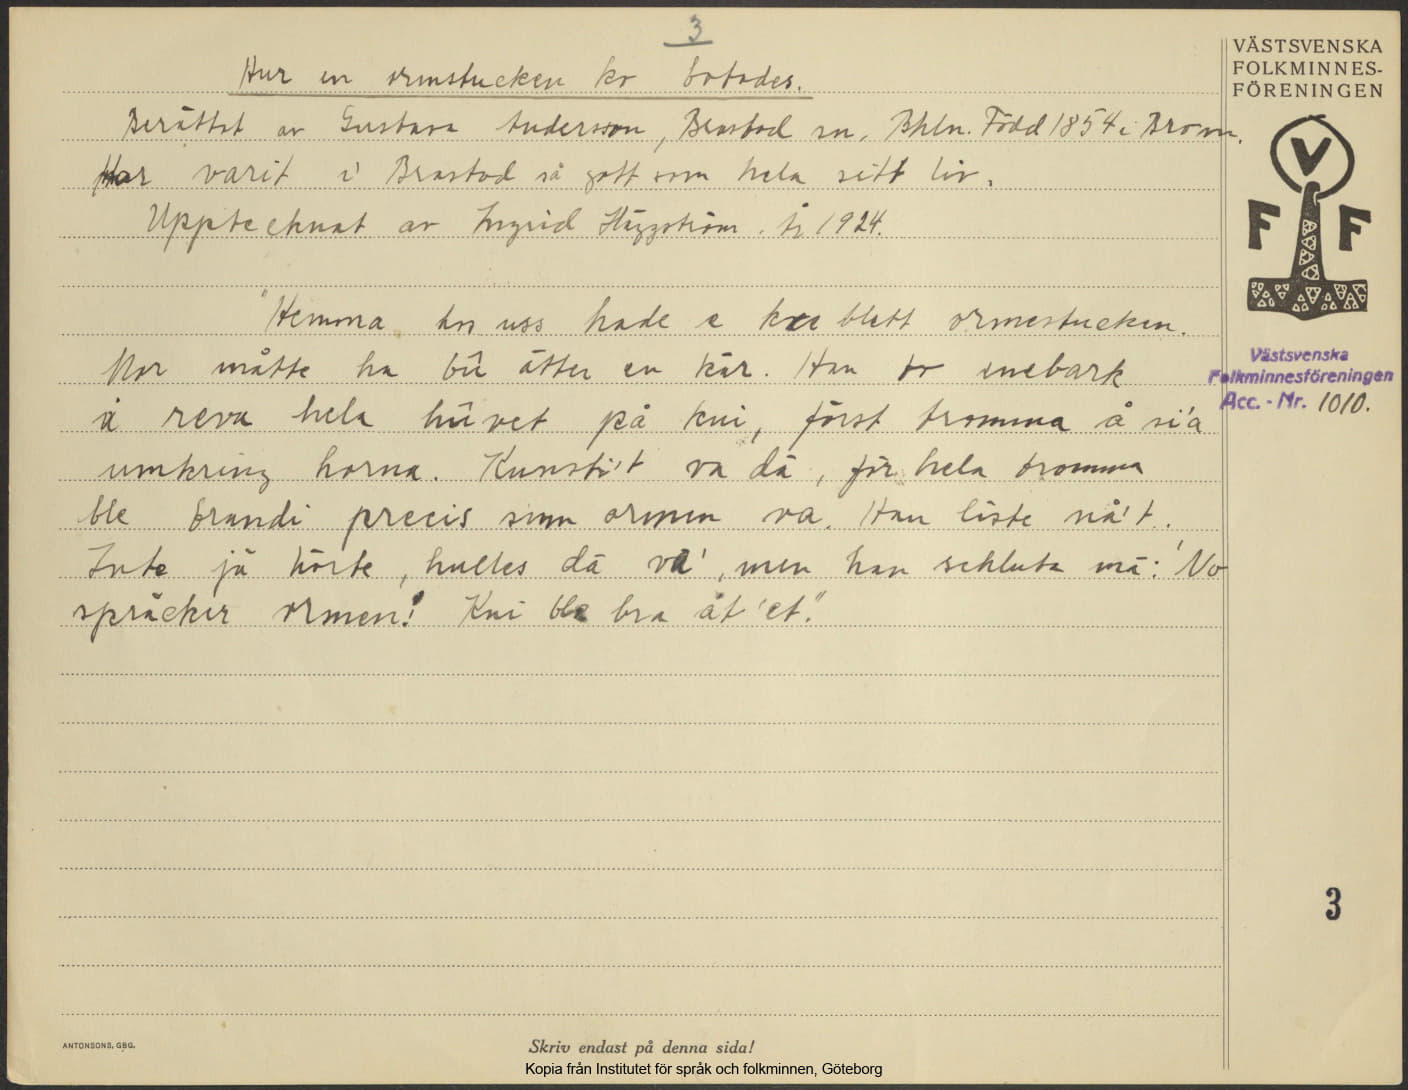 3
Hur en ormstucken ko botades.
Berättat av Gustava Andersson, Brastad sn, Bhln. Född 1854 i Brom.
Har varit i Brastad så gott som hela sitt liv.
Upptecknat av Ingrid Häggström. År 1924.
"Hemma hos uss hade e ku blett ormestucken.
Mor måtte ha bû ätter en kär. Han to enebark
å reva hela hûvet på kui, först tromma å si'a
umkring horna. Kunsti't va dä, för hela tromma
ble brandi precis sum ormen va. Han läste nå't.
Inte jä hörte, hulles dä va', men han schluta mä: 'No
spräcker ormen!' Kui ble bra åt 'et."
VÄSTSVENSKA
FOLKMINNES-
FÖRENINGEN
V
F F
Västsvenska
Folkminnesföreningen
Acc. - Nr. 1010.
3
ANTONSONS, GBG.
Skriv endast på denna sida!
Kopia från Institutet för språk och folkminnen, Göteborg